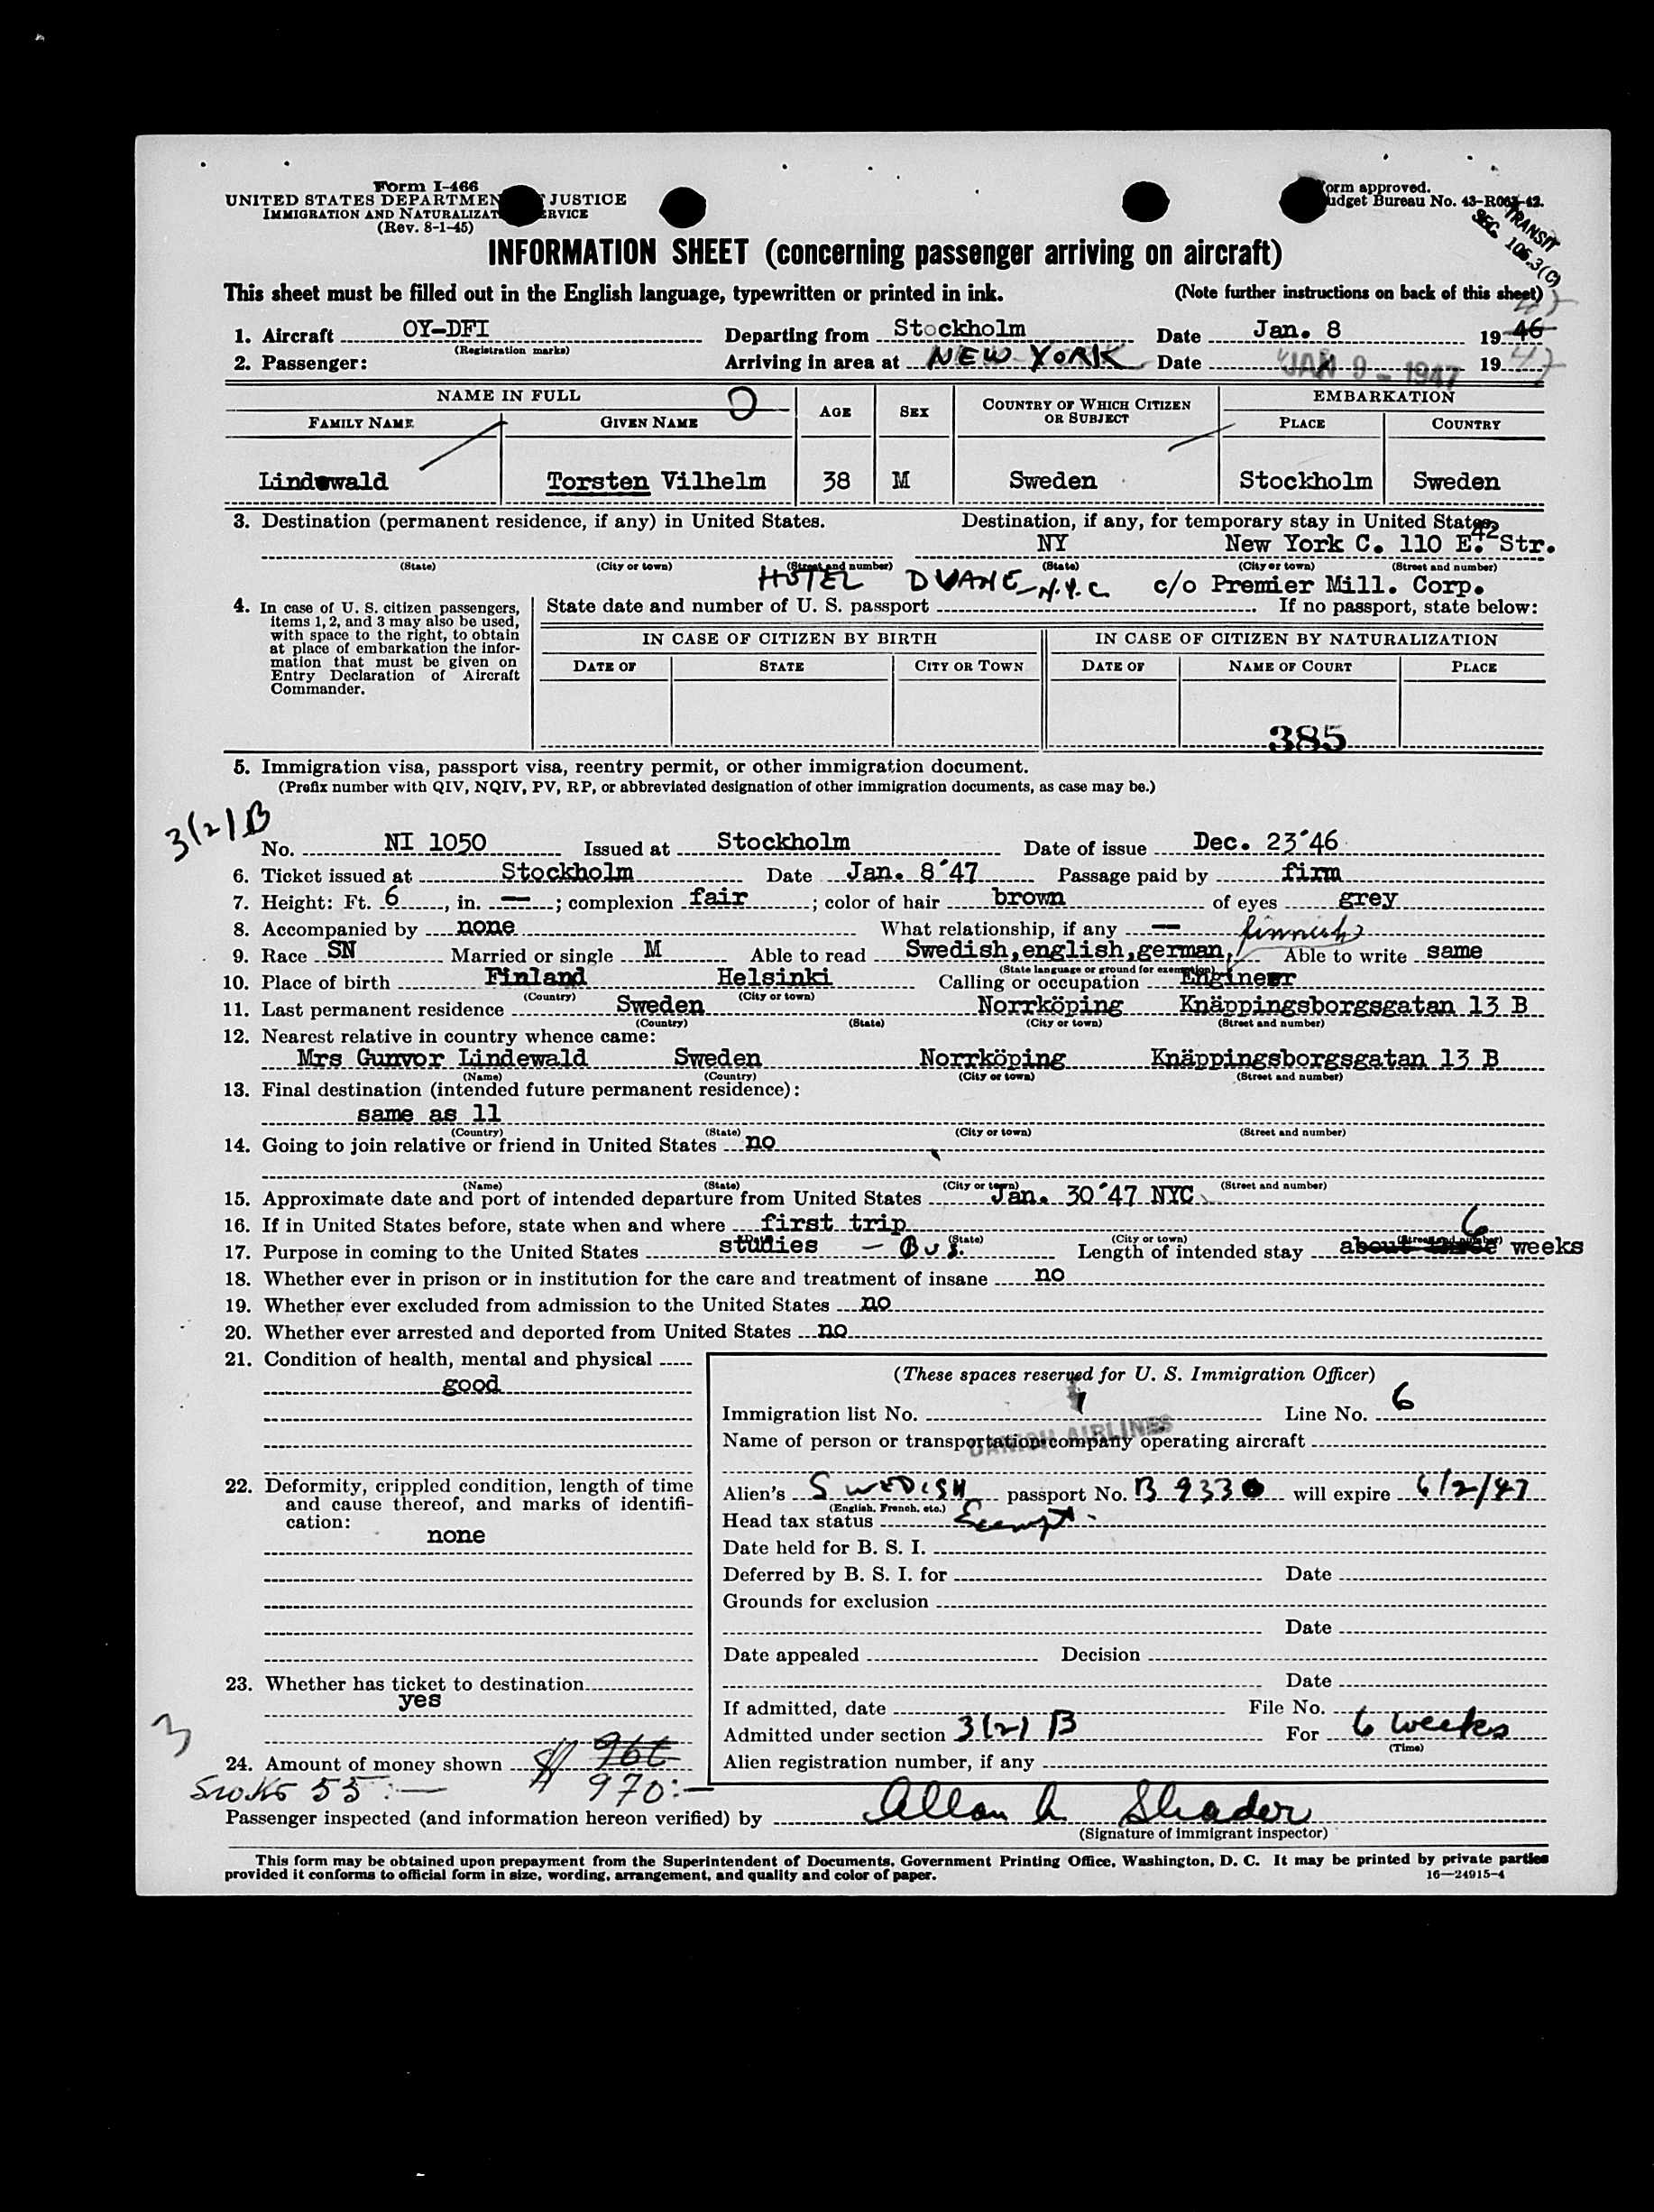 Form I-466
UNITED STATES DEPARTMEN JUSTICE
IMMIGRATION AND NATURALIZAT ERVICE
(Rev. 8-1-45)
orm approved.
udget Bureau No. 43-R065-42.
TRANSIT
SEC. 105.3(C)
INFORMATION SHEET (concerning passenger arriving on aircraft)
This sheet must be filled out in the English language, typewritten or printed in ink. (Note further instructions on back of this sheet)
47
1. Aircraft OY-DFI Departing from Stockholm Date Jan. 8 19 46
(Registration marks)
2. Passenger: Arriving in area at NEW YORK Date JAN 9 - 1947 19 47
NAME IN FULL AGE SEX COUNTRY OF WHICH CITIZEN OR SUBJECT EMBARKATION
FAMILY NAME GIVEN NAME PLACE COUNTRY
Lindewald Torsten Vilhelm 38 M Sweden Stockholm Sweden
3. Destination (permanent residence, if any) in United States. Destination, if any, for temporary stay in United States
NY New York C. 110 E. 42 Str.
(State) (City or town) (Street and number) (State) (City or town) (Street and number)
HOTEL DUANE N.Y.C c/o Premier Mill. Corp.
4. In case of U. S. citizen passengers, items 1, 2, and 3 may also be used, with space to the right, to obtain at place of embarkation the information that must be given on Entry Declaration of Aircraft Commander.
State date and number of U. S. passport If no passport, state below:
IN CASE OF CITIZEN BY BIRTH IN CASE OF CITIZEN BY NATURALIZATION
DATE OF STATE CITY OR TOWN DATE OF NAME OF COURT PLACE
385
5. Immigration visa, passport visa, reentry permit, or other immigration document.
(Prefix number with QIV, NQIV, PV, RP, or abbreviated designation of other immigration documents, as case may be.)
3(2)B
No. NI 1050 Issued at Stockholm Date of issue Dec. 23´46
6. Ticket issued at Stockholm Date Jan. 8´47 Passage paid by firm
7. Height: Ft. 6, in. —; complexion fair; color of hair brown of eyes grey
8. Accompanied by none What relationship, if any — finnish
9. Race SN Married or single M Able to read Swedish,english,german, Able to write same
(State language or ground for exemption)
10. Place of birth Finland Helsinki Calling or occupation Engineer
(Country) (City or town)
11. Last permanent residence Sweden Norrköping Knäppingsborgsgatan 13 B
(Country) (State) (City or town) (Street and number)
12. Nearest relative in country whence came:
Mrs Gunvor Lindewald Sweden Norrköping Knäppingsborgsgatan 13 B
(Name) (Country) (City or town) (Street and number)
13. Final destination (intended future permanent residence):
same as 11
(Country) (State) (City or town) (Street and number)
14. Going to join relative or friend in United States no
(Name) (State) (City or town) (Street and number)
15. Approximate date and port of intended departure from United States Jan. 30´47 NYC
16. If in United States before, state when and where first trip
(State) (City or town) (Street and number)
17. Purpose in coming to the United States studies - Bus. Length of intended stay about three 6 weeks
18. Whether ever in prison or in institution for the care and treatment of insane no
19. Whether ever excluded from admission to the United States no
20. Whether ever arrested and deported from United States no
21. Condition of health, mental and physical
good
(These spaces reserved for U. S. Immigration Officer)
Immigration list No. 1 Line No. 6
DANISH AIRLINES
Name of person or transportation company operating aircraft
22. Deformity, crippled condition, length of time and cause thereof, and marks of identification:
none
Alien's SWEDISH passport No. B 9330 will expire 6/2/47
(English, French, etc.)
Head tax status Exempt.
Date held for B. S. I.
Deferred by B. S. I. for Date
Grounds for exclusion
Date
Date appealed Decision
Date
23. Whether has ticket to destination
yes
If admitted, date File No.
Admitted under section 3(2) B For 6 weeks
(Time)
3
24. Amount of money shown $ 966
970:—
Alien registration number, if any
55:—
Passenger inspected (and information hereon verified) by Allan A Shader
(Signature of immigrant inspector)
This form may be obtained upon prepayment from the Superintendent of Documents, Government Printing Office, Washington, D. C. It may be printed by private parties
provided it conforms to official form in size, wording, arrangement, and quality and color of paper. 16—24915-4